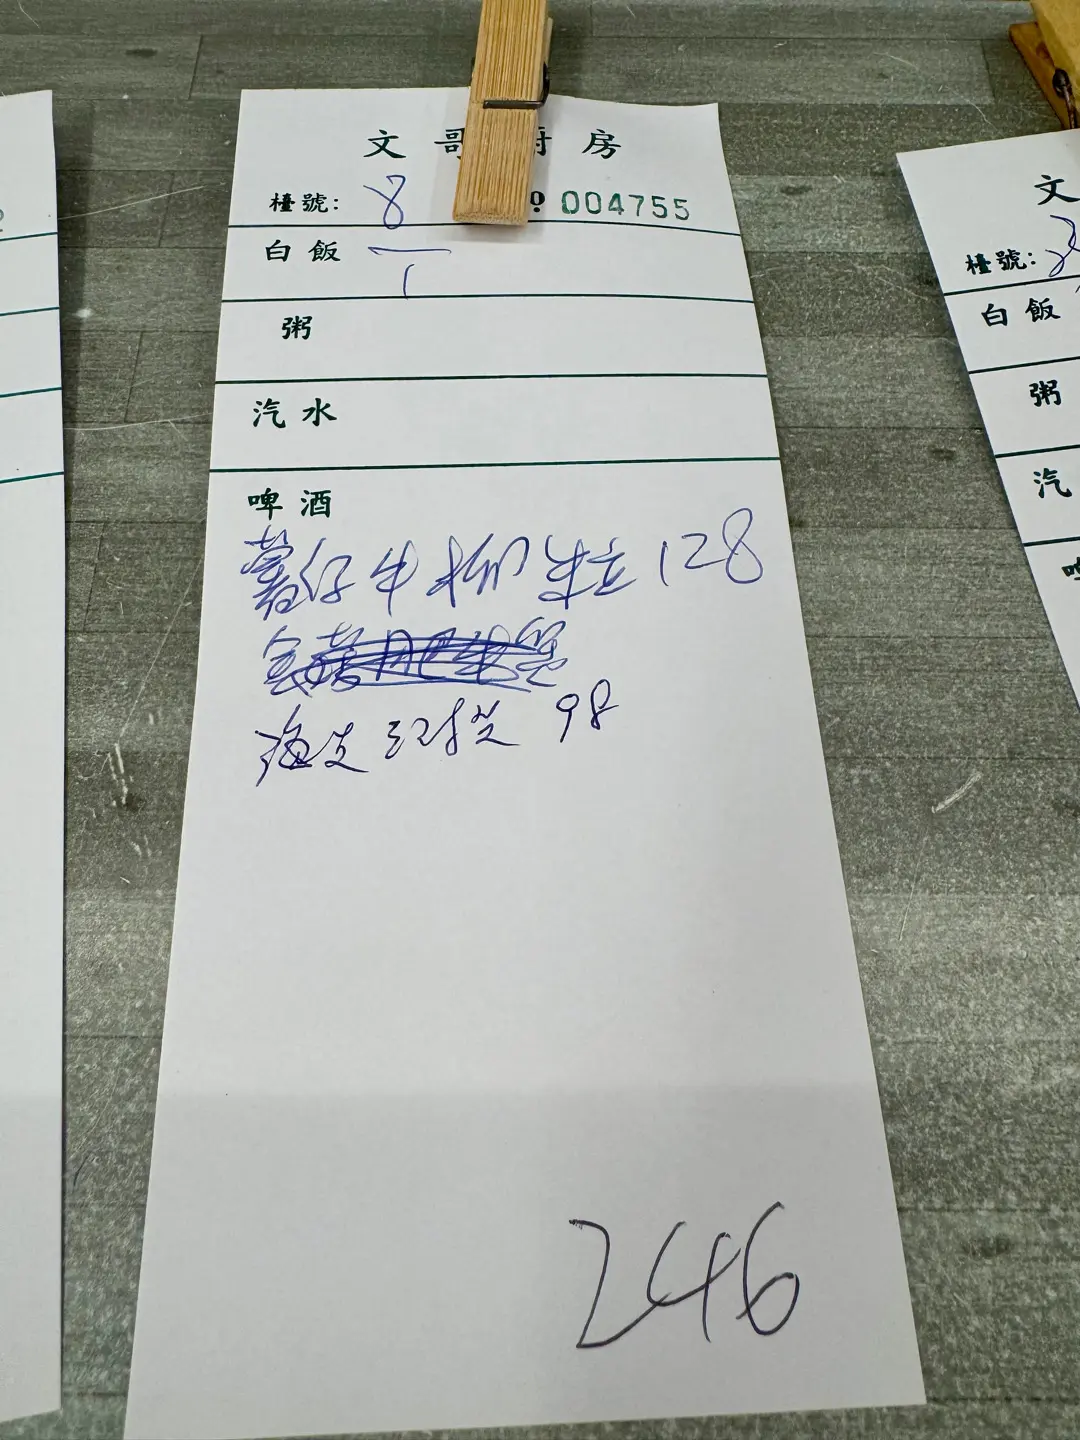 文哥廚房
檯號: 8 No 004755
白飯 一
粥
汽水
啤酒
薯仔牛柳粒 128
98
246
文
檯號:
白飯
粥
汽